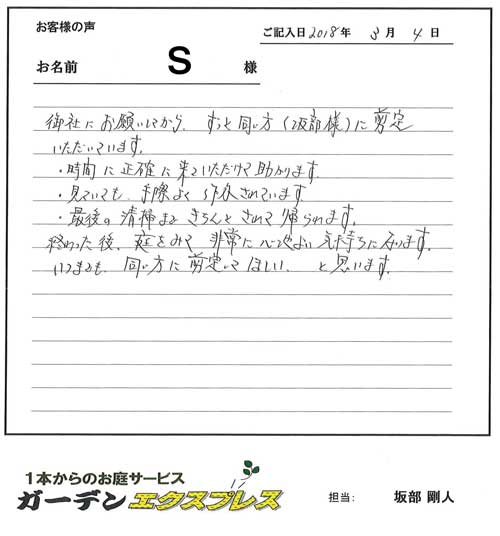 お客様の声
ご記入日 2018年 3月 4日
お名前 S 様
御社にお願いしてから、ずっと同じ方（坂部様）に剪定
いただいています。
・時間に正確に来ていただけて助かります。
・見ていても、手際よく作業されています。
・最後の清掃まできちんとされて帰られます。
終わった後、庭をみて非常に心地よい気持ちになります。
いつまでも、同じ方に剪定してほしい、と思います。
1本からのお庭サービス
ガーデンエクスプレス
担当: 坂部 剛人